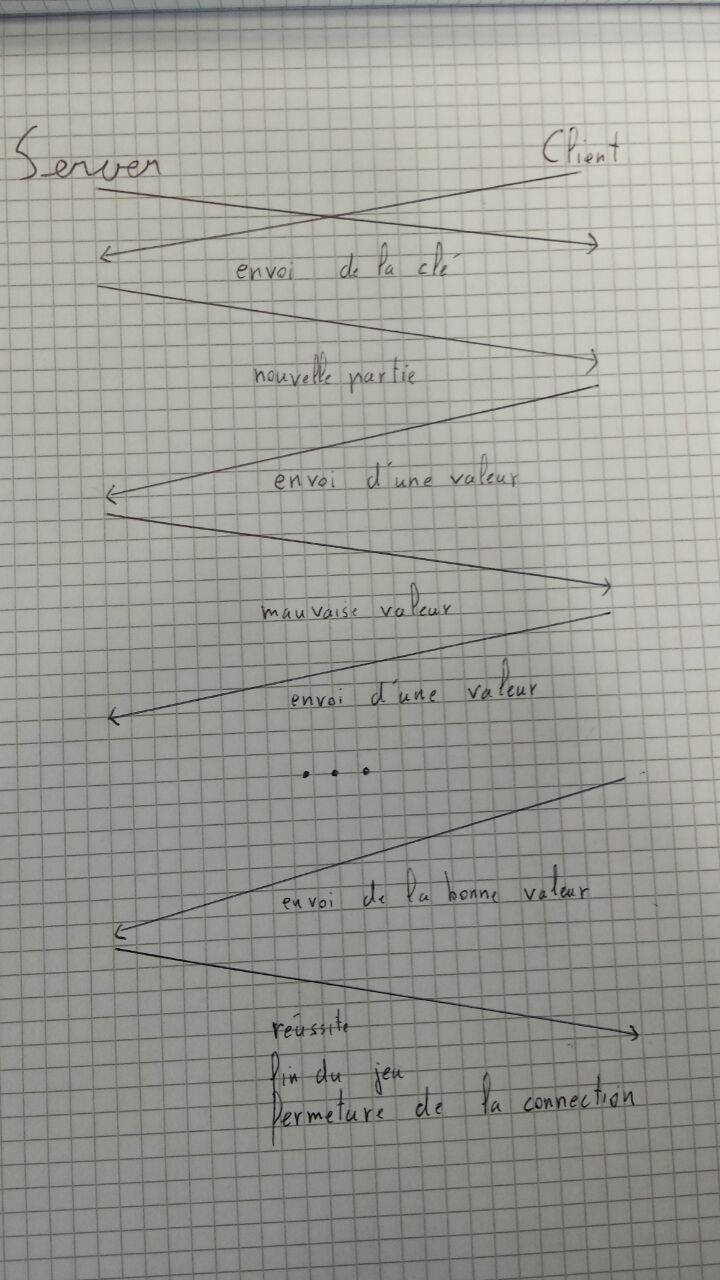 Server
Client
envoi de la clé
nouvelle partie
envoi d'une valeur
mauvaise valeur
envoi d'une valeur
...
envoi de la bonne valeur
réussite
fin du jeu
fermeture de la connection